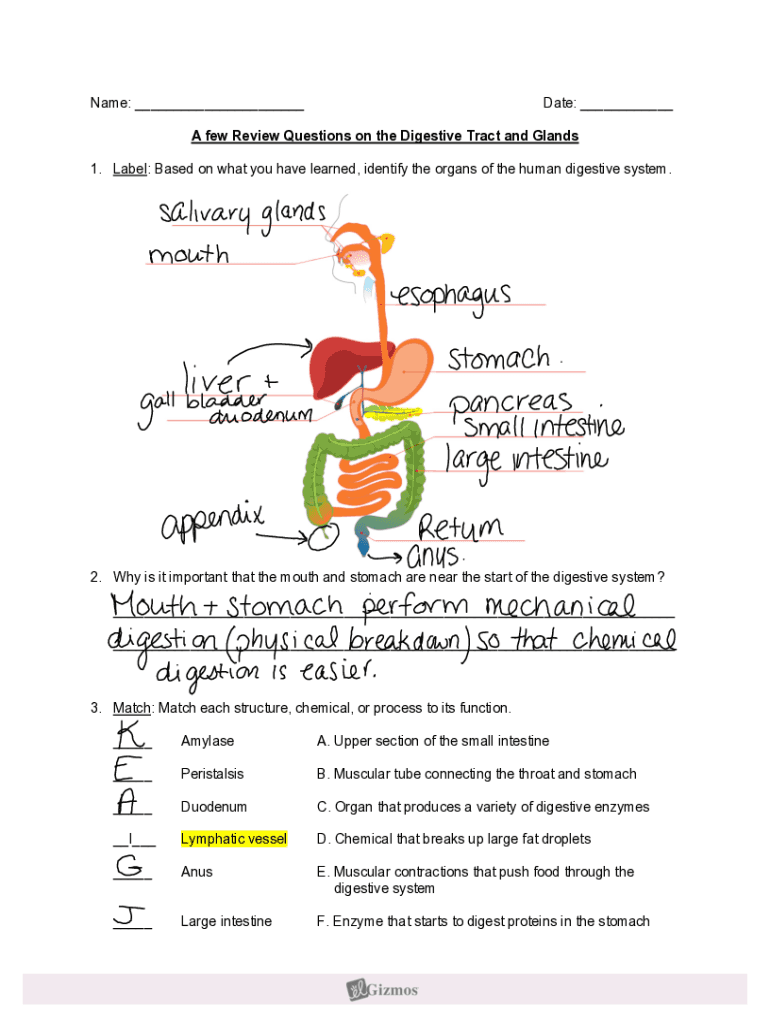 Name: ______________________ Date: ____________
A few Review Questions on the Digestive Tract and Glands
1. Label: Based on what you have learned, identify the organs of the human digestive system.
salivary glands
mouth
esophagus
stomach.
liver +
gall bladder
duodenum
pancreas
small intestine
large intestine
appendix
Retum
anus.
2. Why is it important that the mouth and stomach are near the start of the digestive system?
Mouth + stomach perform mechanical
digestion (physical breakdown) so that chemical
digestion is easier.
3. Match: Match each structure, chemical, or process to its function.
K Amylase A. Upper section of the small intestine
E Peristalsis B. Muscular tube connecting the throat and stomach
A Duodenum C. Organ that produces a variety of digestive enzymes
I Lymphatic vessel D. Chemical that breaks up large fat droplets
G Anus E. Muscular contractions that push food through the
digestive system
J Large intestine F. Enzyme that starts to digest proteins in the stomach
Gizmos